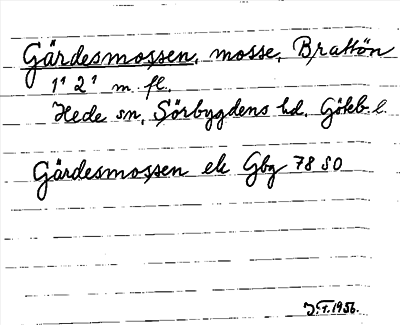 Gärdesmossen, mosse, Brattön
1¹ 2¹ m. fl.
Hede sn, Sörbygdens hd. Götebl.
Gärdesmossen ek Gbg 78 SO
J.T. 1956.